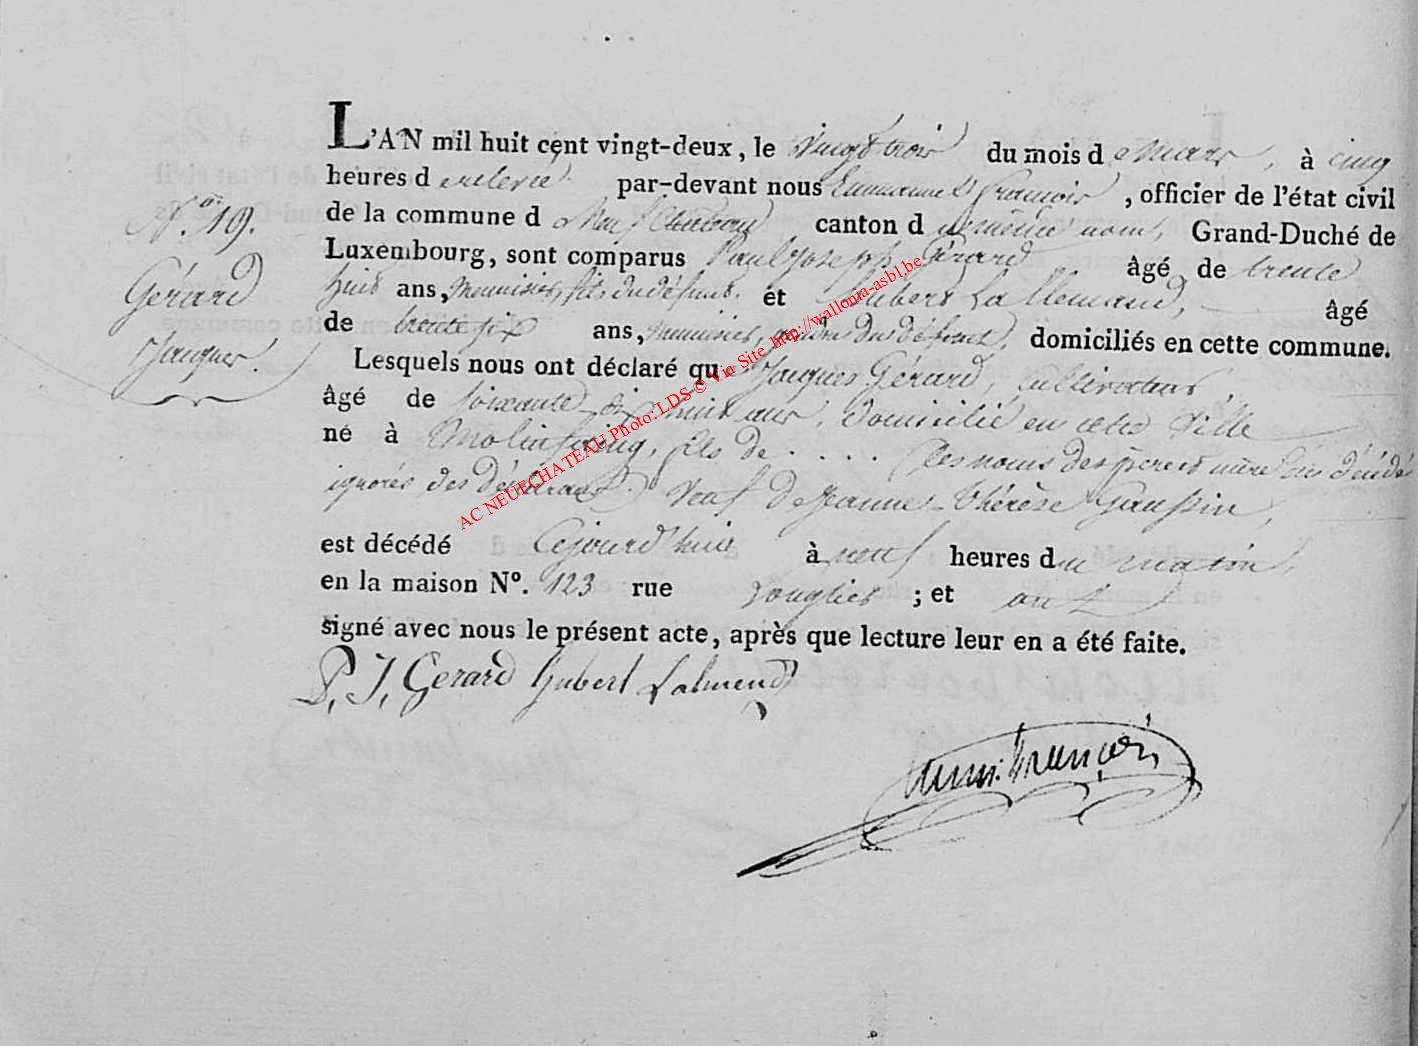 L'AN mil huit cent vingt-deux, le vingt trois du mois de Mars, à cinq
heures de relevé par-devant nous Emmanuel François, officier de l'état civil
N.° 19.
de la commune de Neufchateau canton du même nom, Grand-Duché de
Luxembourg, sont comparus Paul Joseph Gérard âgé de trente
Gérard
Jacques.
huit ans, Menuisier, fils du défunt. et hubert Lallemand, âgé
de trente six ans, Menuisier, gendre du défunt, domiciliés en cette commune.
Lesquels nous ont déclaré que Jacques Gérard, cultivateur,
âgé de soixante dix huit ans, domicilié en cette Ville
né à Molinfaing, fils de . . . . (les noms des pere et mère du décédé
ignorés des déclarans.) Veuf de Jeanne Thérèse
est décédé Cejourd'huir à neuf heures du matin,
en la maison N°. 123 rue ; et ont
signé avec nous le présent acte, après que lecture leur en a été faite.
P. J. Gerard hubert Lalmend
Emm. François
AC NEUFCHATEAU Photo: LDS © Via Site http://wallonia-asbl.be